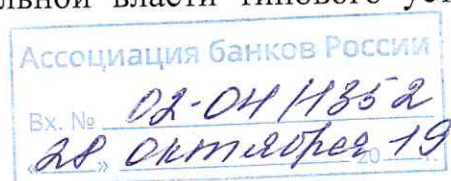 льной власти типового уст
Ассоциация банков России
Вх. № 02-04/1352
«28» октября 2019